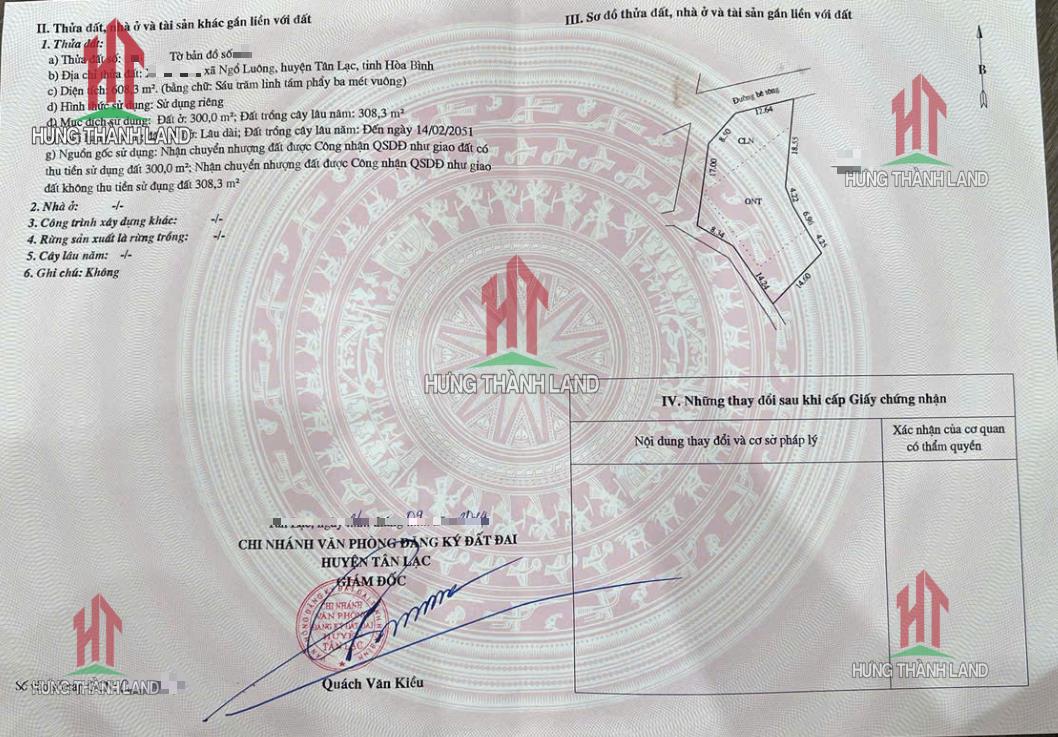 II. Thửa đất, nhà ở và tài sản khác gắn liền với đất
1. Thửa đất:
a) Thửa đất số: Tờ bản đồ số
b) Địa chỉ thửa đất: xã Ngổ Luông, huyện Tân Lạc, tỉnh Hòa Bình
c) Diện tích: 608,3 m². (bằng chữ: Sáu trăm linh tám phẩy ba mét vuông)
d) Hình thức sử dụng: Sử dụng riêng
đ) Mục đích sử dụng: Đất ở: 300,0 m²; Đất trồng cây lâu năm: 308,3 m²
Lâu dài; Đất trồng cây lâu năm: Đến ngày 14/02/2051
g) Nguồn gốc sử dụng: Nhận chuyển nhượng đất được Công nhận QSDĐ như giao đất có
thu tiền sử dụng đất 300,0 m²; Nhận chuyển nhượng đất được Công nhận QSDĐ như giao
đất không thu tiền sử dụng đất 308,3 m²
2. Nhà ở: -/-
3. Công trình xây dựng khác: -/-
4. Rừng sản xuất là rừng trồng: -/-
5. Cây lâu năm: -/-
6. Ghi chú: Không
III. Sơ đồ thửa đất, nhà ở và tài sản gắn liền với đất
B
Đường bê tông
12.64
8.50
CLN
18.55
17.00
ONT
4.22
6.96
4.25
8.34
14.24
14.60
IV. Những thay đổi sau khi cấp Giấy chứng nhận
Nội dung thay đổi và cơ sở pháp lý
Xác nhận của cơ quan
có thẩm quyền
CHI NHÁNH VĂN PHÒNG ĐĂNG KÝ ĐẤT ĐAI
HUYỆN TÂN LẠC
GIÁM ĐỐC
CHI NHÁNH
VĂN PHÒNG
ĐĂNG KÝ ĐẤT ĐAI
HUYỆN
TÂN LẠC
Quách Văn Kiều
HT
HƯNG THÀNH LAND
HT
HƯNG THÀNH LAND
HT
HƯNG THÀNH LAND
HT
HƯNG THÀNH LAND
HT
HƯNG THÀNH LAND